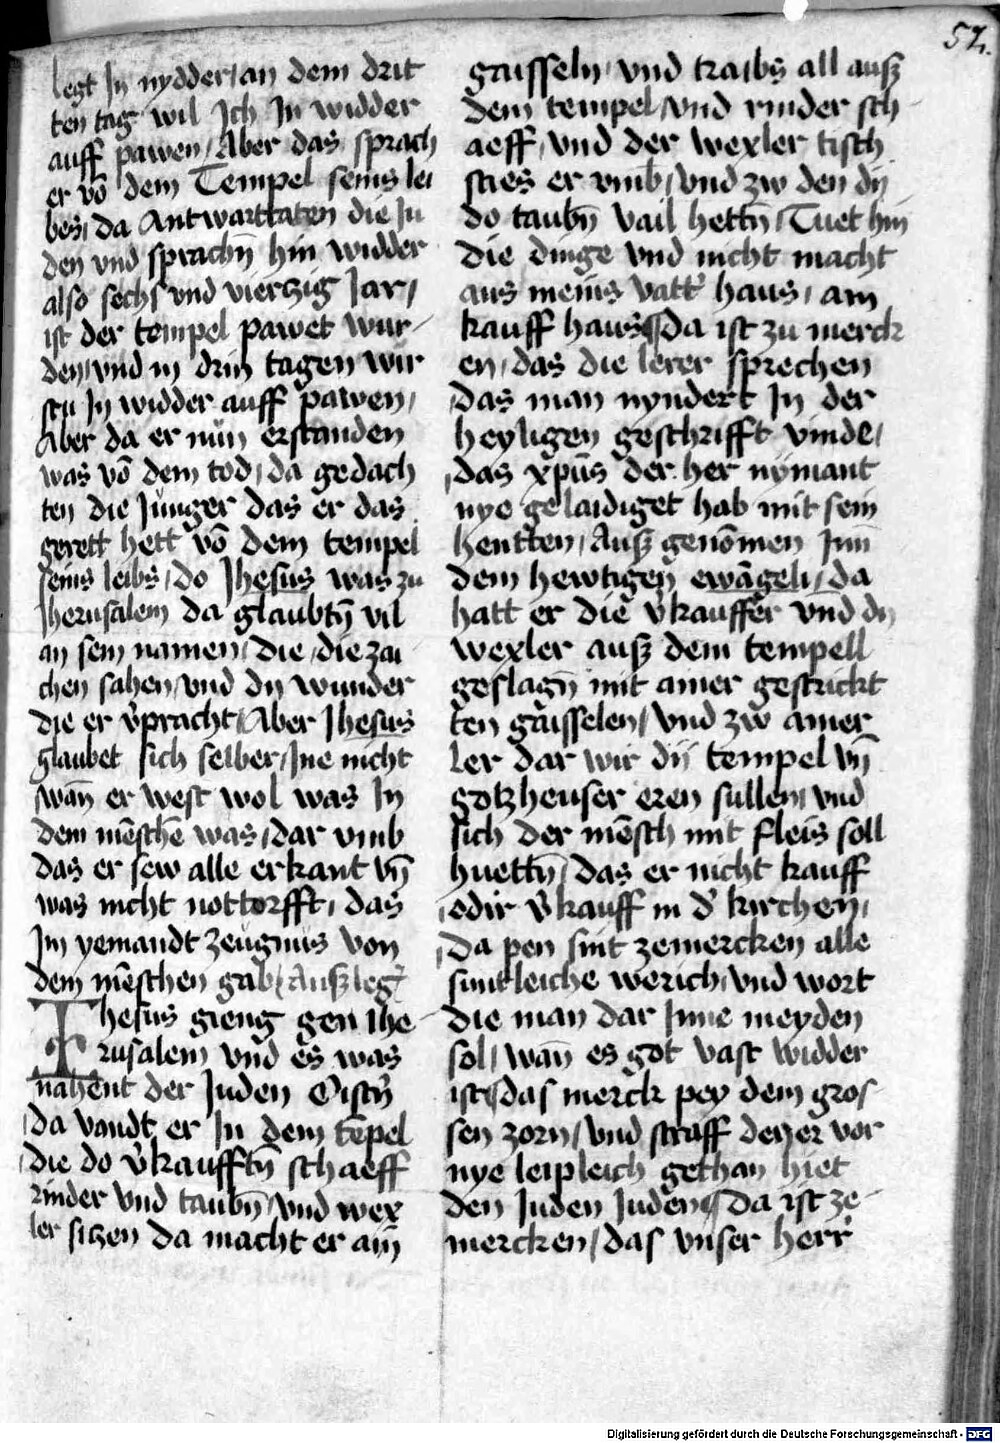 52.
legt In nydder / an dem drit
ten tag wil Ich In widder
auff pawen / Aber das sprach
er vō dem Tempel seins lei
bes / da Antwartt​aten die Ju
den vnd sprachn̄ hin widder
also sechs vnd vierczig Jar /
ist der tempel pawet wur-
den / vnd in drin tagen wir
stu In widder auff pawen /
Aber da er nün erstanden
was vō dem tod / da gedach
ten die Jünger das er das
gerett hett vō dem tempel
seins leibs / do Jhesus was zu
Jherusalem da glaubtn̄ vil
an sein namen / die / die zai
chen sahen / vnd dy wunder
die er v̉pracht / Aber Jhesus
glaubet sich selber / Ine nicht
wan̄ er west wol was In
dem mēschē was / dar vmb
das er sew alle erkant vn̄
was nicht nottorfft / das
Im yemandt zeugnus von
dem mēschen gab / Außleg̉
Jhesus gieng gen Jhe
rusalem vnd es was
nahent der Juden Ostn̉
da vandt er In dem tēpel
die do v̉kaufftn̄ schaeff
rinder vnd taubn̄ / vnd wex
ler siczen da macht er ain̄
gaisseln / vnd traibs all auß
dem tempel / vnd rinder sch-
aeff / vnd der wexler tisch
sties er vmb / vnd zw den dy
do taubn̄ vail hettn̄ / Tuet hin
die dinge vnd nicht macht
aus meins vatt̉ haus / am
kauff haws da ist zu merck
en / das die lerer sprechen
das man nyndert In der
heyligen geschrifft vinde /
das xp̄us der her nymant
nye gelaidiget hab mit sein
hentten / Auß genōmen Inn̄
dem hewtigen ewāgeli / da
hatt er die v̉kauffer vnd dy
wexler auß dem tempell
geslagn̄ mit ainer gestrickt
ten gaisselen / vnd zw ainer
ler dar wir dy tempel vn̄
gotzheuser eren sullen / vnd
sich der mēsch mit fleis soll
huettn̄ / das er nicht kauff
odir v̉kauff in d̉ kirchen /
da pey sint zemercken alle
suntleiche werich / vnd wort
die man dar Inne meyden
sol / wan̄ es got vast widder
ist / das merck pey dem gros-
sen zorn / vnd straff der er vor
nye leipleich gethan hiet
den Juden Juden / Da ist ze-
mercken / das vnser herr̉
Digitalisierung gefördert durch die Deutsche Forschungsgemeinschaft - DFG